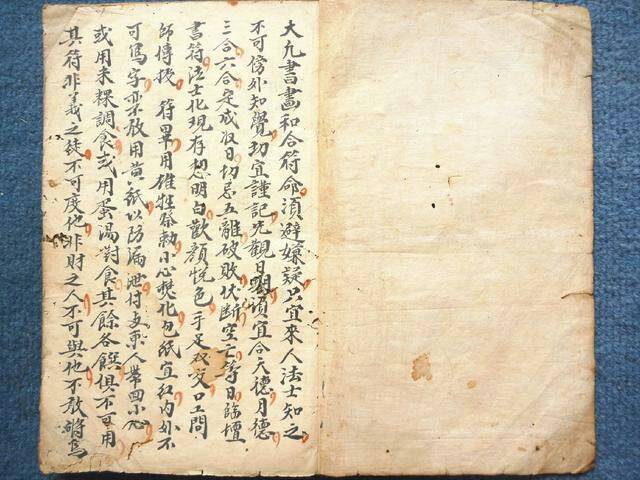 大凢書畫和合符命須避嫌疑只宜來人法士知之
不可傍外知覺切宜謹記先觀日期須宜合天德月德
三合六合定成收日切忌五離破敗伏斷空亡等日臨壇
書符法士化現存想明白歡顔悅色手足双交口工問
師傳授符畢用雄牲祭勅小心焚化包紙宜紅内外不
可寫字亦敖用黄紙以防漏泄付与東人帶回小心
或用米粿調食或用蛋湯對食其餘各饌俱不可用
其符非義之徒不可度他非財之人不可與他不敖